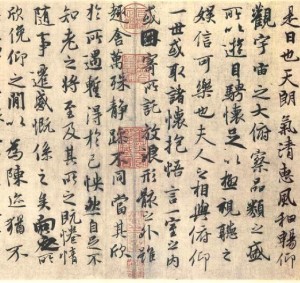 是日也天朗氣清惠風和暢仰
觀宇宙之大俯察品類之盛
所以遊目騁懷足以極視聽之
娛信可樂也夫人之相與俯仰
一世或取諸懷抱悟言一室之內
或因寄所託放浪形骸之外雖
趣舍萬殊靜躁不同當其欣
於所遇蹔得於己怏然自足不
知老之將至及其所之既惓情
隨事遷感慨係之矣向之所
欣俛仰之閒以為陳迹猶不